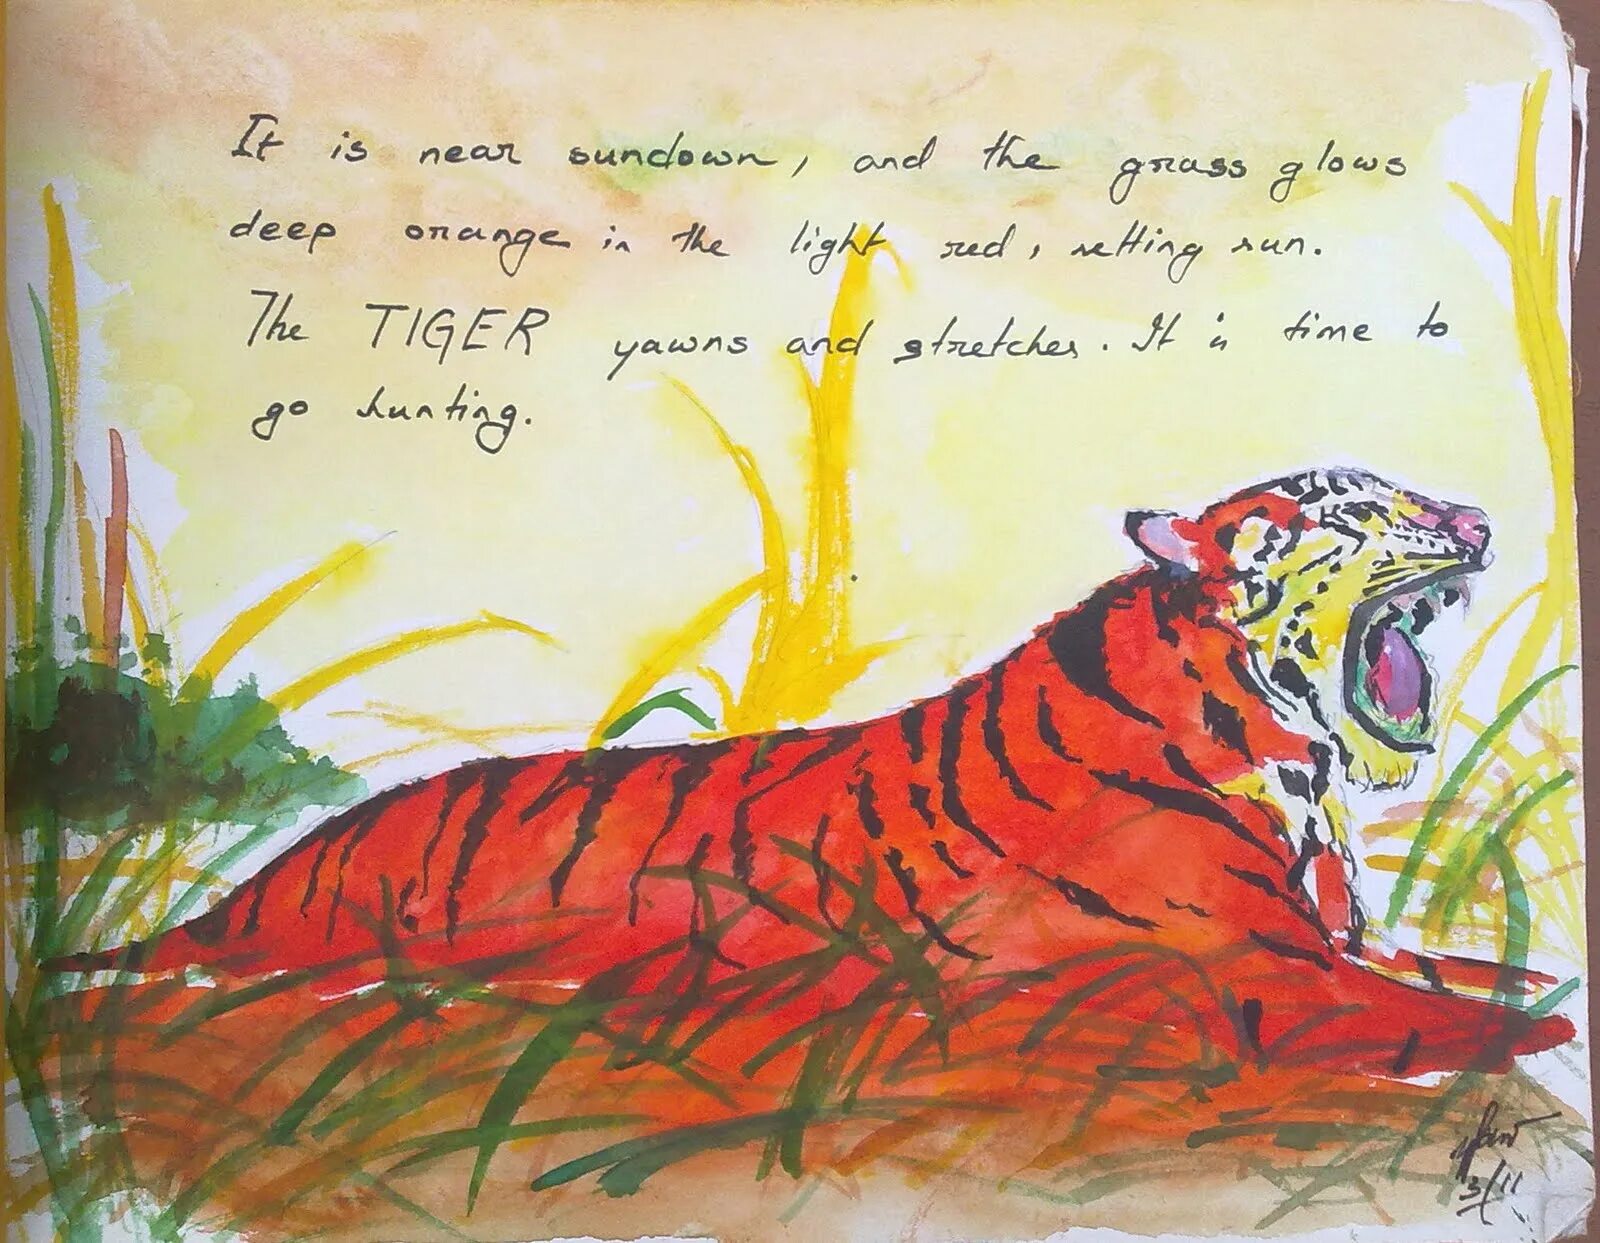 It is near sundown, and the grass glows
deep orange in the light red, setting sun.
The TIGER yawns and stretches. It is time to
go hunting.
3/11